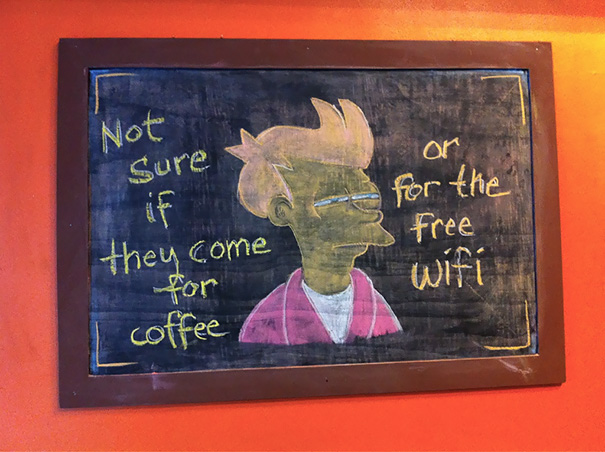 Not
Sure
if
they come
for
coffee
or
For the
Free
WiFi